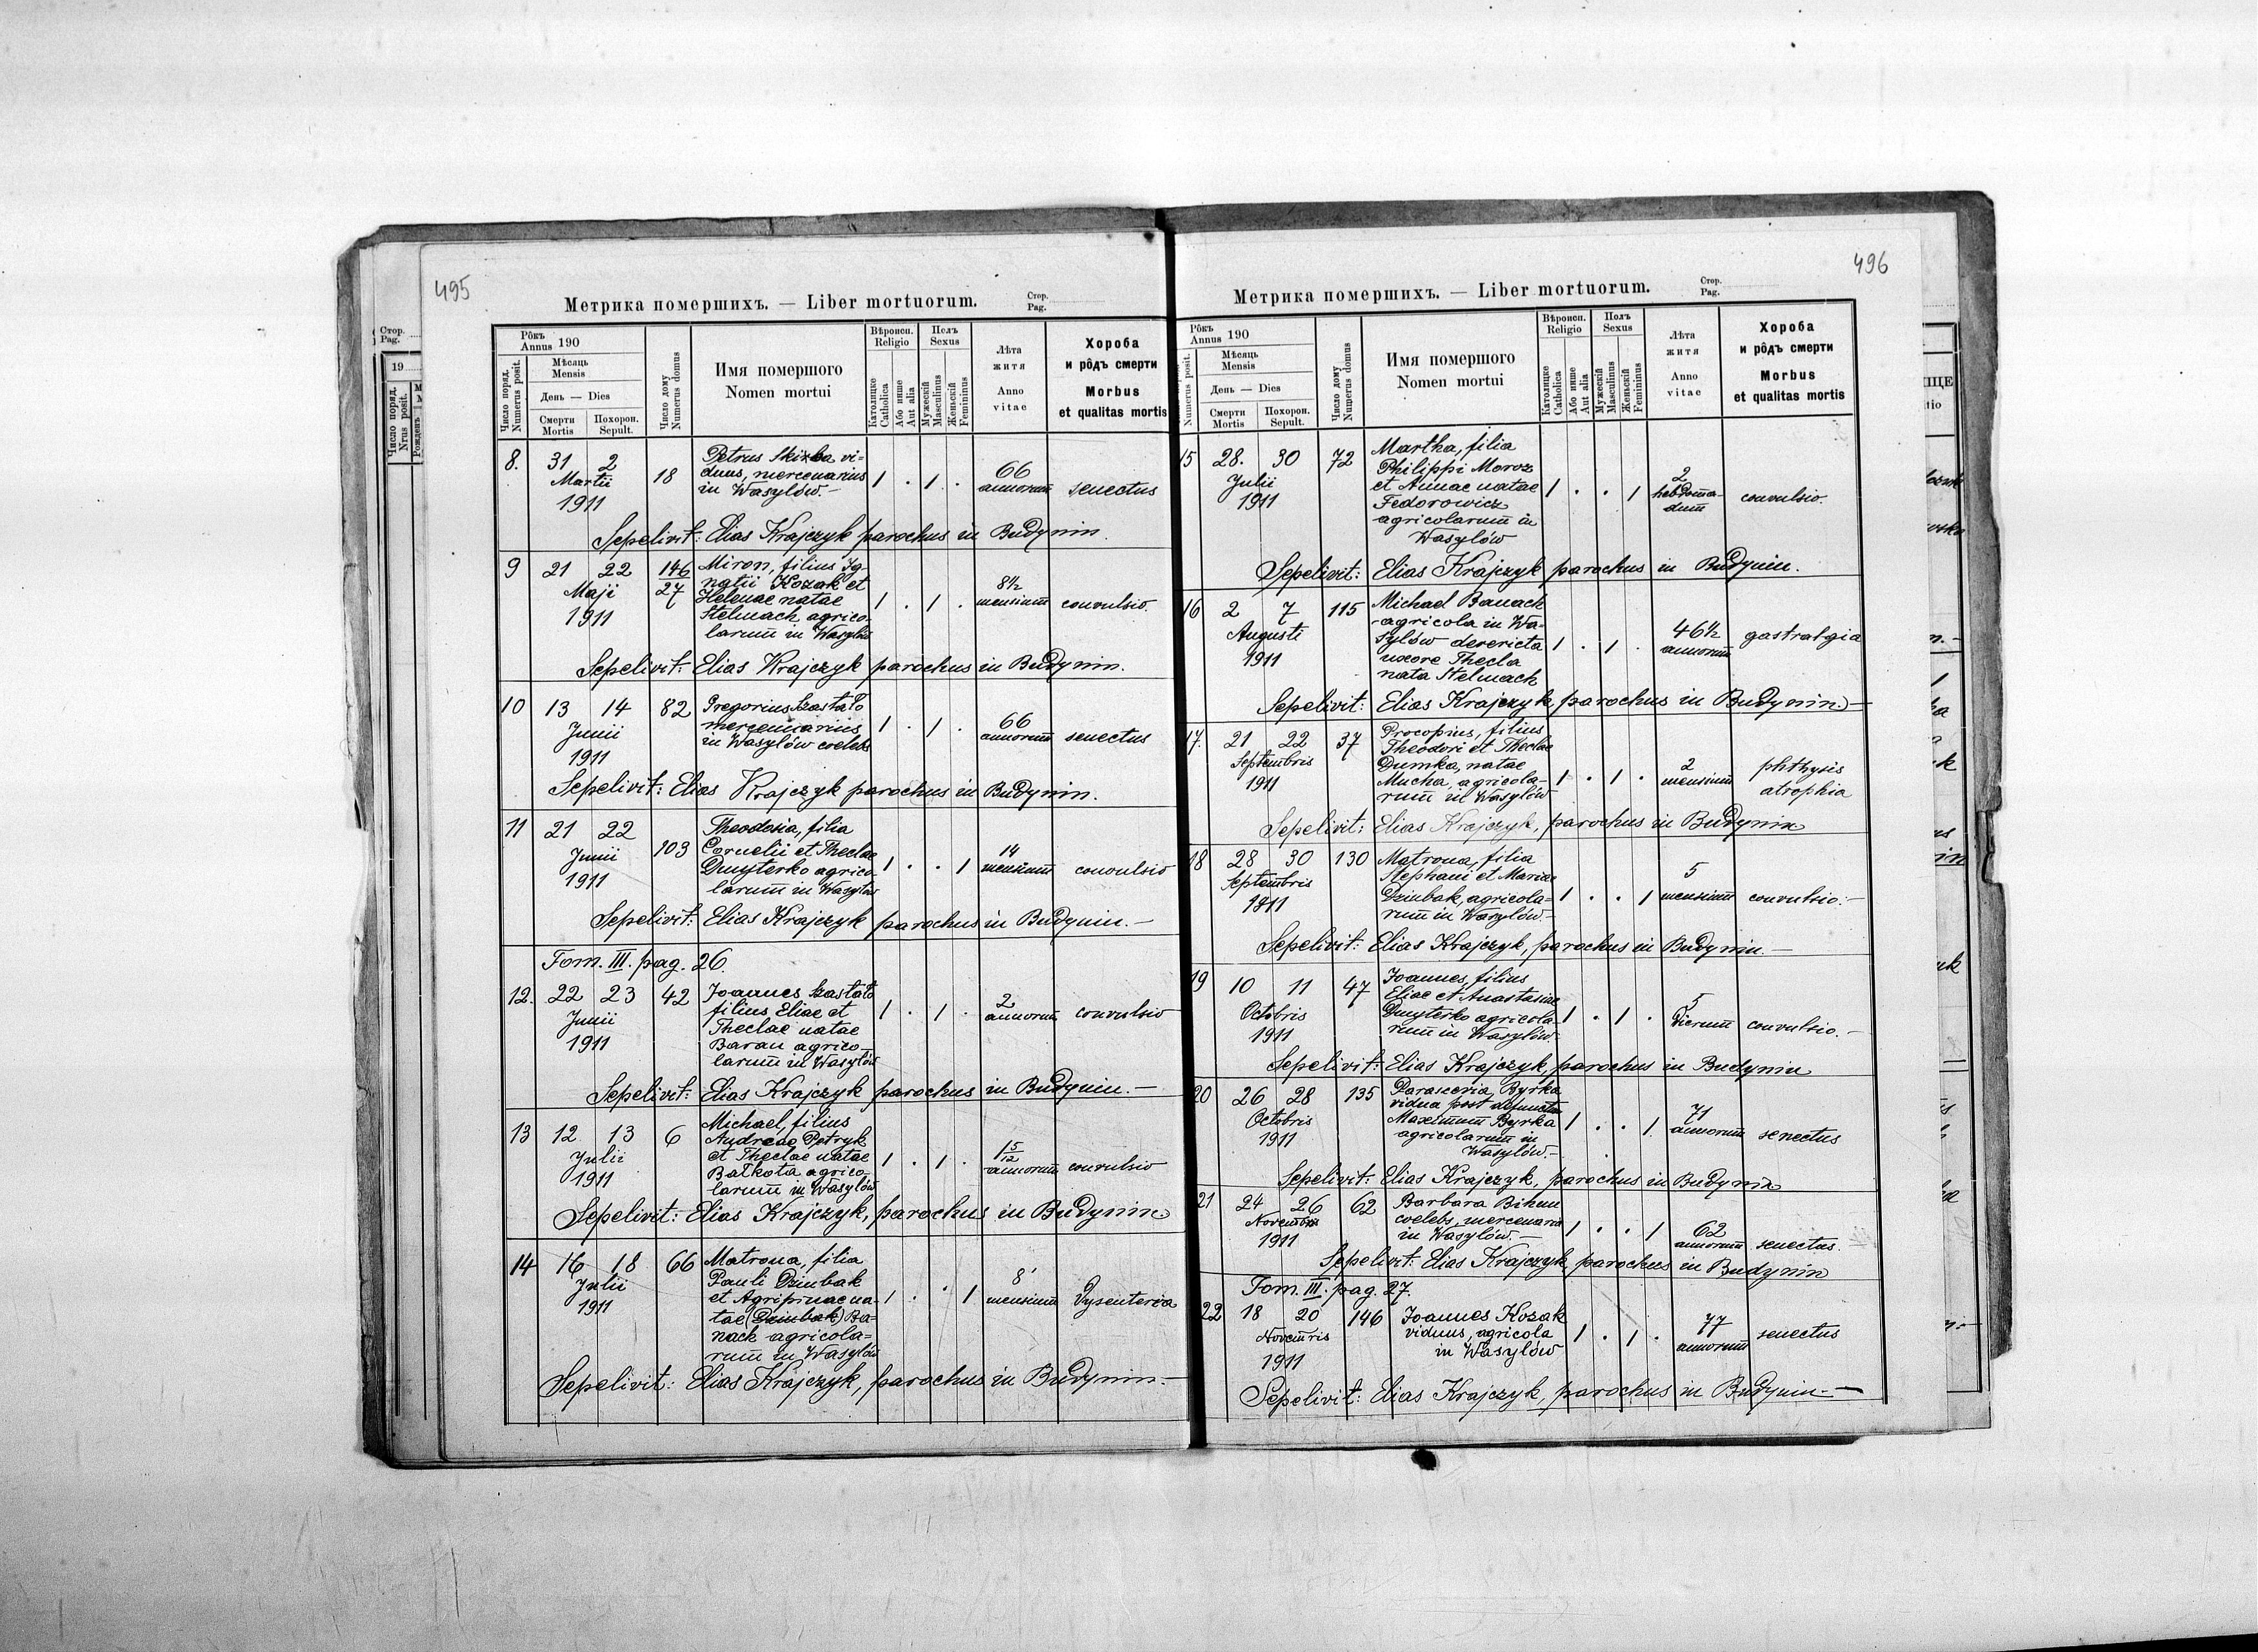 495
Метрика померших. — Liber mortuorum.
Стор.
Pag.
Рôкъ
Annus 190
Число поряд.
Numerus posit.
Мѣсяць
Mensis
День — Dies
Смерти
Mortis
Похорон.
Sepult.
Число дому
Numerus domus
Имя помершого
Nomen mortui
Вѣроисп.
Religio
Католицке
Catholica
Або инше
Aut alia
Полъ
Sexus
Мужескій
Masculinus
Женьскій
Femininus
Лѣта
житя
Anno
vitae
Хороба
и рôдъ смерти
Morbus
et qualitas mortis
8. 31 2 18 Petrus vi-
Martii duus, mercenarius 1 . 1 . 66
1911 in Wasylów.- annorum senectus
Sepelivit: Elias Krajczyk parochus in Budynin.
9 21 22 146 Miron, filius Ig-
Maji 27 natii Kozak et 8½
1911 Helenae natae 1 . 1 . mensium convulsio.
Stelmach agrico-
larum in Wasylów
Sepelivit: Elias Krajczyk parochus in Budynin.
10 13 14 82 Gregorius Szastało
Junii mercenarius 1 . 1 . 66
1911 in Wasylów coelebs annorum senectus
Sepelivit: Elias Krajczyk parochus in Budynin.
11 21 22 103 Theodosia, filia
Junii Cornelii et Theclae 14
1911 Dmyterko agrico- 1 . . 1 mensium convulsio
larum in Wasylów
Sepelivit: Elias Krajczyk parochus in Budynin.-
Tom. III. pag. 26.
12. 22 23 42 Joannes Szastało
Junii filius Eliae et 1 . 1 . 2
1911 Theclae natae annorum convulsio
Baran agrico-
larum in Wasylów
Sepelivit: Elias Krajczyk parochus in Budynin.-
13 12 13 6 Michael, filius
Julii Andreae Petryk
1911 et Theclae natae 1 . 1 . 1 5/12
Bałkota agrico- annorum convulsio
larum in Wasylów
Sepelivit: Elias Krajczyk, parochus in Budynin.
14 16 18 66 Matrona, filia
Julii Pauli Dziubak 8
1911 et Agripinae na- 1 . . 1 mensium dysenteria
tae (Dziubak) Ba-
nack agricola=
rum in Wasylów
Sepelivit: Elias Krajczyk, parochus in Budynin.-
496
Метрика померших. — Liber mortuorum.
Стор.
Pag.
Рôкъ
Annus 190
Numerus posit.
Мѣсяць
Mensis
День — Dies
Смерти
Mortis
Похорон.
Sepult.
Число дому
Numerus domus
Имя помершого
Nomen mortui
Вѣроисп.
Religio
Католицке
Catholica
Або инше
Aut alia
Полъ
Sexus
Мужескій
Masculinus
Женьскій
Femininus
Лѣта
житя
Anno
vitae
Хороба
и рôдъ смерти
Morbus
et qualitas mortis
15 28. 30 72 Martha, filia
Julii Philippi Moroz
1911 et Annae natae 1 . . 1 2
Fedorowicz hebdoma-
agricolarum in dum convulsio.
Wasylów
Sepelivit: Elias Krajczyk parochus in Budynin.
16 2 7 115 Michael Banach
Augusti agricola in Wa-
1911 sylów derericta 1 . 1 . 46½
uxore Thecla annorum gastralgia
nata Stelmach
Sepelivit: Elias Krajczyk parochus in Budynin.-
17. 21 22 37 Procopius, filius
Septembris Theodori et Theclae
1911 Dumka, natae 2 phthysis
Mucha, agricola- 1 . 1 . mensium atrophia
rum in Wasylów
Sepelivit: Elias Krajczyk, parochus in Budynin
18 28 30 130 Matrona, filia
Septembris Stephani et Mariae 5
1911 Dziubak, agricola= 1 . . 1 mensium convulsio.-
rum in Wasylów.-
Sepelivit: Elias Krajczyk, parochus in Budynin.-
19 10 11 47 Joannes, filius
Octobris Eliae et Anastasiae 5
1911 Dmyterko agricola- 1 . 1 . dierum convulsio.-
rum in Wasylów.
Sepelivit: Elias Krajczyk parochus in Budynin
20 26 28 135 Parasceria Byrka
Octobris vidua post defunctum 71
1911 Maximum Byrka 1 . . 1. annorum senectus
agricolarum in
Wasylów.-
Sepelivit: Elias Krajczyk, parochus in Budynin
21 24 26 62 Barbara Bihun
Novembris coelebs, mercenaria 1 . . 1 62
1911 in Wasylów.- annorum senectus.-
Sepelivit: Elias Krajczyk, parochus in Budynin
Tom. III. pag. 27.
22 18 20 146 Joannes Kozak 77
Novembris viduus, agricola 1 . 1 . annorum senectus
1911 in Wasylów
Sepelivit: Elias Krajczyk, parochus in Budynin.-